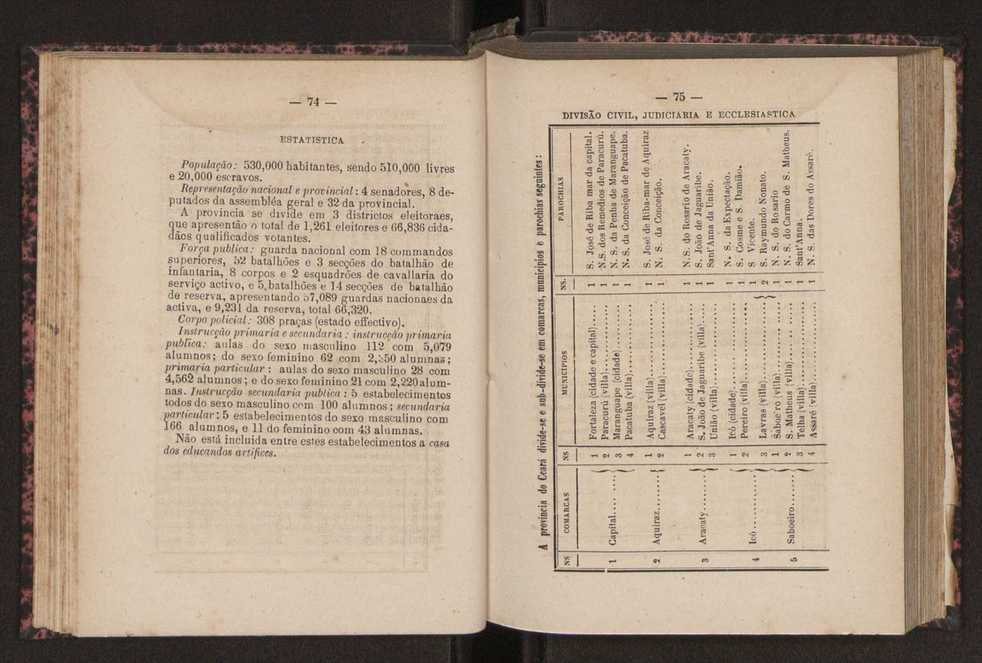 — 74 —
ESTATISTICA
População: 530,000 habitantes, sendo 510,000 livres
e 20,000 escravos.
Representação nacional e provincial: 4 senadores, 8 de-
putados da assembléa geral e 32 da provincial.
A provincia se divide em 3 districtos eleitoraes,
que apresentão o total de 1,261 eleitores e 66,836 cida-
dãos qualificados votantes.
Força publica: guarda nacional com 18 commandos
superiores, 52 batalhões e 3 secções do batalhão de
infantaria, 8 corpos e 2 esquadrões de cavallaria do
serviço activo, e 5 batalhões e 14 secções de batalhão
de reserva, apresentando 57,089 guardas nacionaes da
activa, e 9,231 da reserva, total 66,320.
Corpo policial: 308 praças (estado effectivo).
Instrucção primaria e secundaria: instrucção primaria
publica: aulas do sexo masculino 112 com 5,079
alumnos; do sexo feminino 62 com 2,250 alumnas;
primaria particular: aulas do sexo masculino 28 com
4,562 alumnos; e do sexo feminino 21 com 2,220 alum-
nas. Instrucção secundaria publica: 5 estabelecimentos
todos do sexo masculino com 100 alumnos; secundaria
particular: 5 estabelecimentos do sexo masculino com
166 alumnos, e 11 do feminino com 43 alumnas.
Não está incluida entre estes estabelecimentos a casa
dos educandos artifices.
— 75 —
DIVISÃO CIVIL, JUDICIARIA E ECCLESIASTICA
A provincia do Ceará divide-se e sub-divide-se em comarcas, municipios e parochias seguintes:
NS COMARCAS NS MUNICIPIOS NS. PAROCHIAS
1 Capital.... 1 Fortaleza (cidade e capital).... 1 S. José de Riba mar da capital.
2 Paracurú (villa).... 1 N. S. dos Remedios de Paracurú.
3 Maranguape (cidade).... 1 N. S. da Penha de Maranguape.
4 Pacatuba (villa).... 1 N. S. da Conceição de Pacatuba.
2 Aquiraz.... 1 Aquiraz (villa).... 1 S. José de Riba-mar de Aquiraz
2 Cascavel (villa).... 1 N. S. da Conceição.
3 Aracaty.... 1 Aracaty (cidade).... 1 N. S. do Rosario de Aracaty.
2 S. João de Jaguaribe (villa).... 1 S. João de Jaguaribe.
3 União (villa).... 1 Sant'Anna da União.
4 Icó.... 1 Icó (cidade).... 1 N. S. da Expectação.
2 Pereiro (villa).... 1 S. Cosme e S. Damião.
3 Lavras (villa).... 1 S Vicente.
2 S. Raymundo Nonato.
5 Saboeiro.... 1 Saboeiro (villa).... 1 N. S. do Rosario
2 S. Matheus (villa).... 1 N. S. do Carmo de S. Matheus.
3 Telha (villa).... 1 Sant'Anna.
4 Assaré (villa).... 1 N. S. das Dores do Assaré.